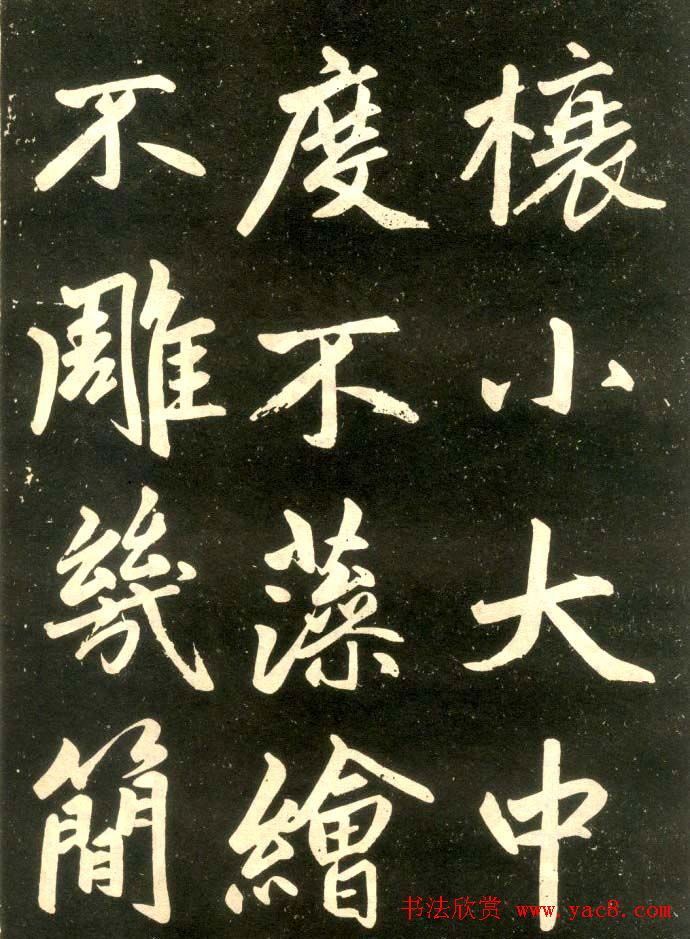 榱小大中
度不藻繪
不雕幾簡
书法欣赏 www.yac8.com